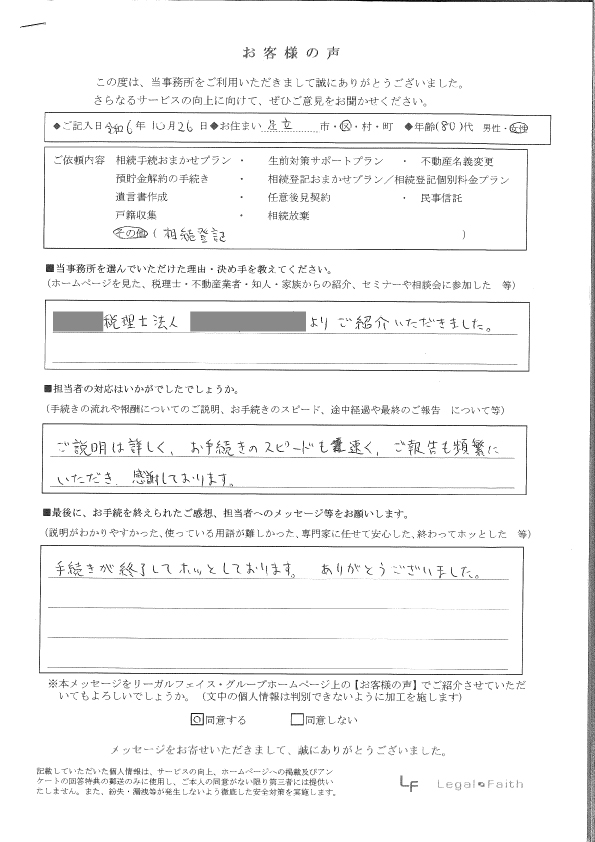 お客様の声
この度は、当事務所をご利用いただきまして誠にありがとうございました。
さらなるサービスの向上に向けて、ぜひご意見をお聞かせください。
◆ご記入日 令和6年10月26日◆お住まい 足立 市・区・村・町 ◆年齢(80)代 男性・女性
ご依頼内容 相続手続おまかせプラン ・ 生前対策サポートプラン ・ 不動産名義変更
預貯金解約の手続き ・ 相続登記おまかせプラン／相続登記個別料金プラン
遺言書作成 ・ 任意後見契約 ・ 民事信託
戸籍収集 ・ 相続放棄
その他 ( 相続登記 )
■当事務所を選んでいただけた理由・決め手を教えてください。
(ホームページを見た、税理士・不動産業者・知人・家族からの紹介、セミナーや相談会に参加した 等)
税理士法人 よりご紹介いただきました。
■担当者の対応はいかがでしたでしょうか。
(手続きの流れや報酬についてのご説明、お手続きのスピード、途中経過や最終のご報告 について等)
ご説明は詳しく、お手続きのスピードも速く、ご報告も頻繁に
いただき、感謝しております。
■最後に、お手続を終えられたご感想、担当者へのメッセージ等をお願いします。
(説明がわかりやすかった、使っている用語が難しかった、専門家に任せて安心した、終わってホッとした 等)
手続きが終了してホッとしております。 ありがとうございました。
※本メッセージをリーガルフェイス・グループホームページ上の【お客様の声】でご紹介させていただ
いてもよろしいでしょうか。(文中の個人情報は判別できないように加工を施します)
同意する 同意しない
メッセージをお寄せいただきまして、誠にありがとうございました。
記載していただいた個人情報は、サービスの向上、ホームページへの掲載及びアン
ケートの回答特典の郵送のみに使用し、ご本人の同意がない限り第三者には提供い
たしません。また、紛失・漏洩等が発生しないよう徹底した安全対策を実施します。
LF Legal Faith